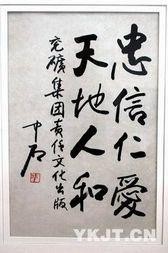 忠信仁愛
天地人和
兖礦集团责任文化出版
中石
YKJT.CN